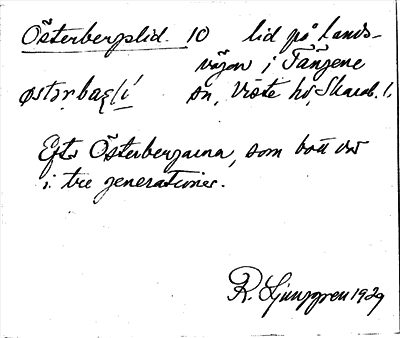 Österbergslid. 10 lid på lands-
vägen i Tängene
sn, Väste hd, Skarab. l.
Efter Österbergarna, som bott där
i tre generationer.
R. Ljunggren 1929